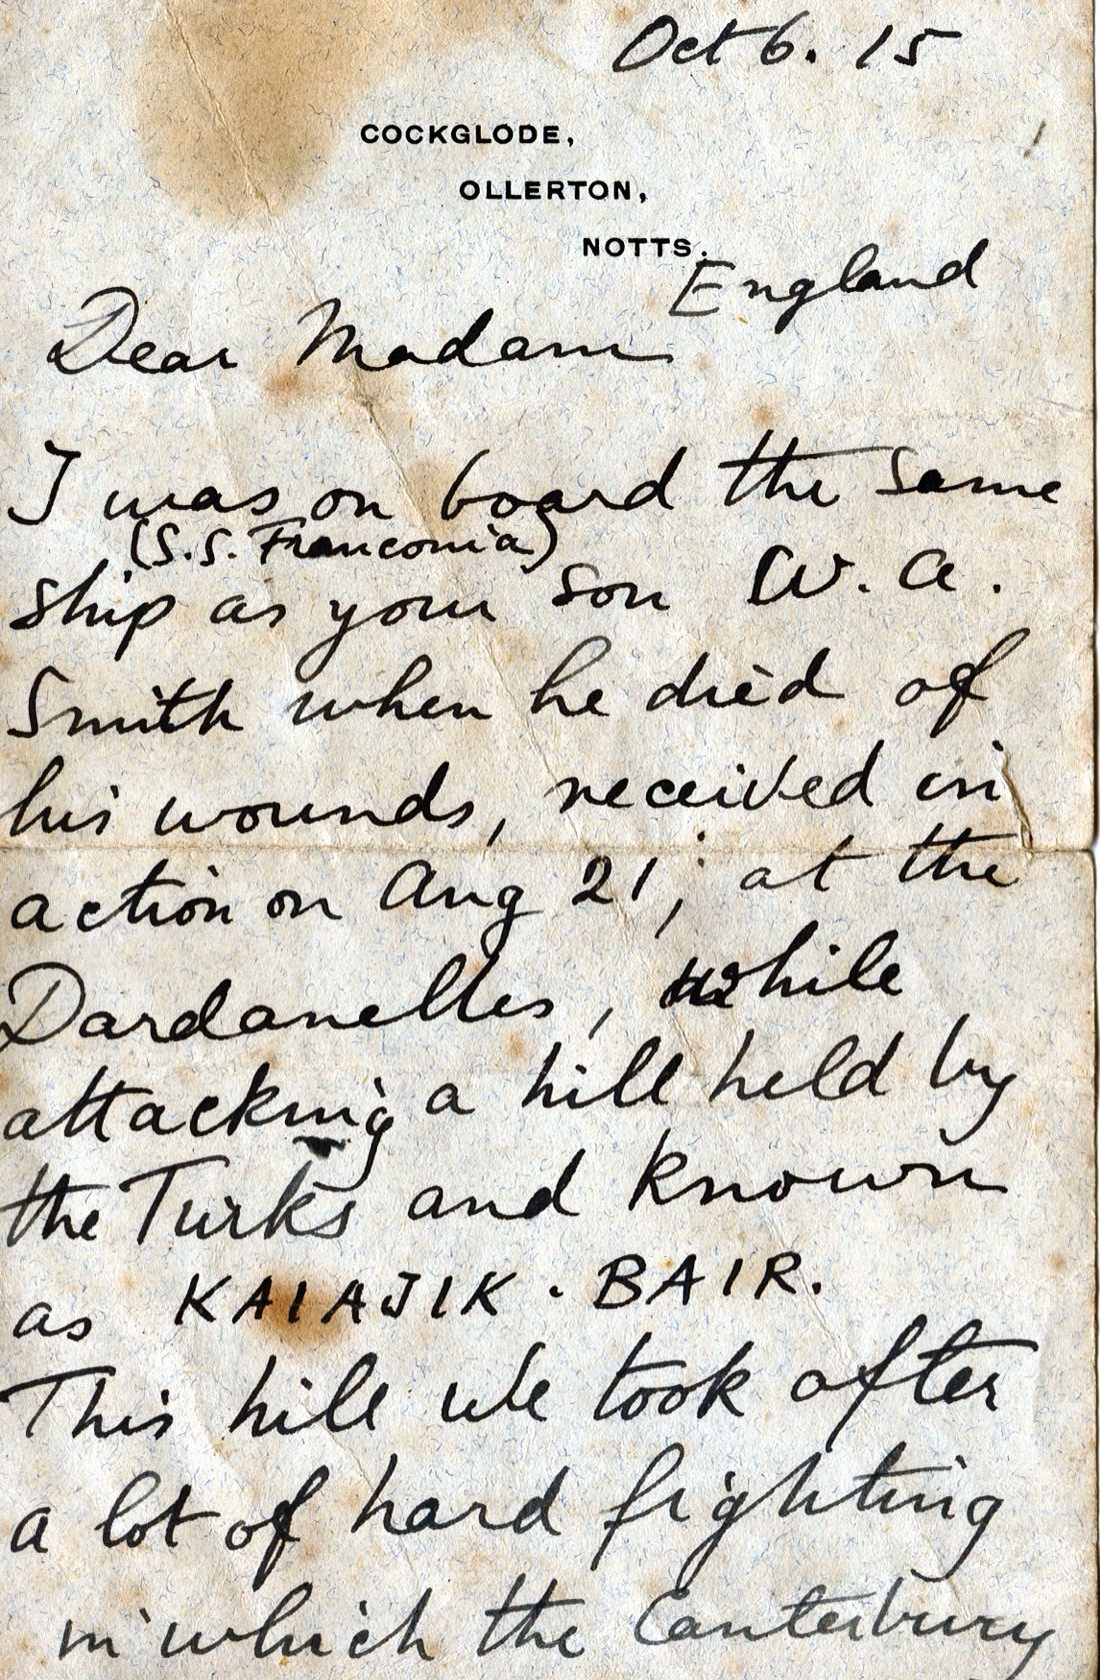 Oct 6. 15
COCKGLODE,
OLLERTON,
NOTTS.
England
Dear Madam
I was on board the same
(S.S. Franconia)
ship as your son W. A.
Smith when he died of
his wounds, received in
action on Aug 21, at the
Dardanelles, while
attacking a hill held by
the Turks and known
as KAIAJIK · BAIR.
This hill we took after
a lot of hard fighting
in which the Canterbury